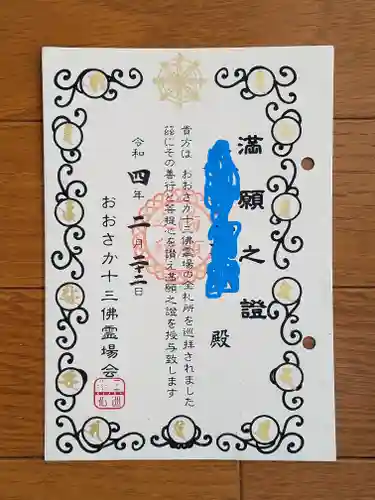 満願之證
殿
貴方は おおさか十三佛霊場の全札所を巡拝されました
茲にその善行と菩提心を讃え満願之證を授与致します
令和四年二月二十二日
おおさか十三佛霊場会